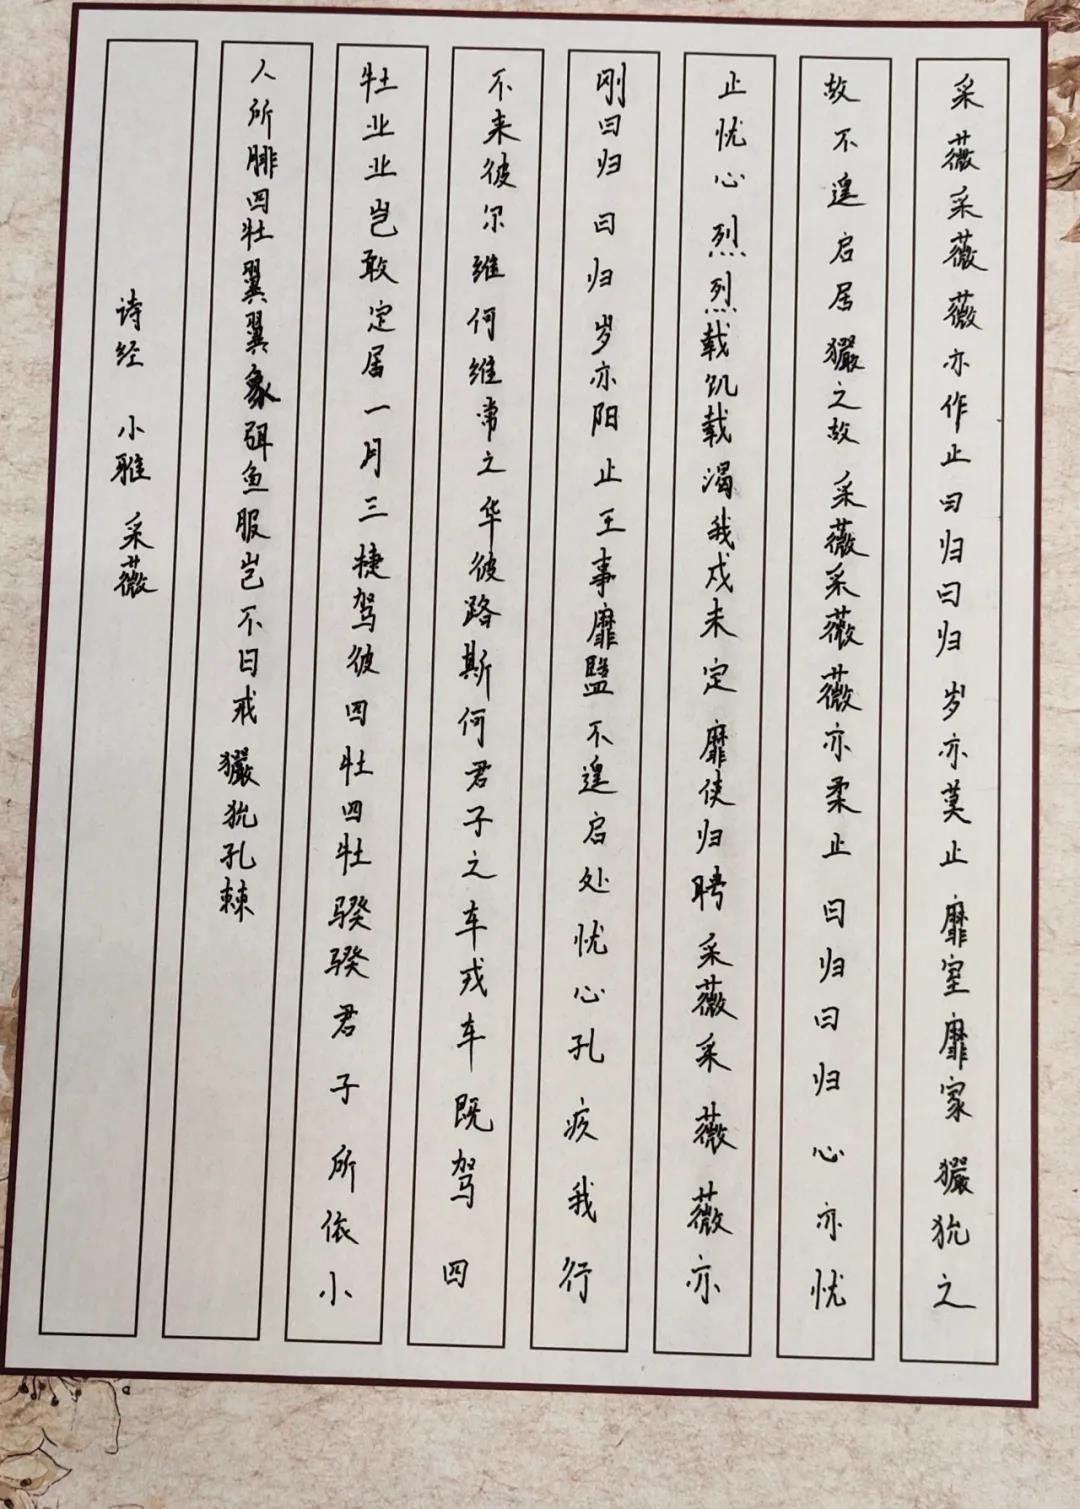 采薇采薇薇亦作止曰归曰归岁亦莫止靡室靡家玁狁之
故不遑启居玁之故采薇采薇薇亦柔止曰归曰归心亦忧
止忧心烈烈载饥载渴我戍未定靡使归聘采薇采薇薇亦
刚曰归曰归岁亦阳止王事靡盬不遑启处忧心孔疚我行
不来彼尔维何维常之华彼路斯何君子之车戎车既驾四
牡业业岂敢定居一月三捷驾彼四牡四牡骙骙君子所依小
人所腓四牡翼翼象弭鱼服岂不日戒玁狁孔棘
诗经 小雅 采薇